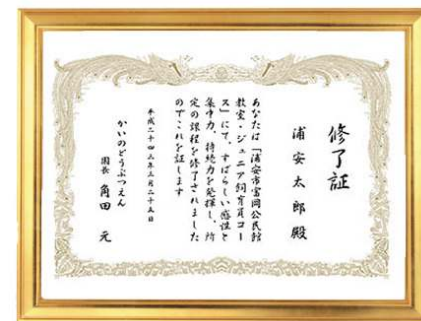 修了証
浦安太郎殿
あなたは「浦安市富岡公民館
教室・ジュニア飼育員コー
ス」にて、すばらしい感性と
集中力、持続力を発揮し、所
定の課程を修了されました
のでこれを証します
平成二十四年三月二十五日
かいのどうぶつえん
園長 角田 元